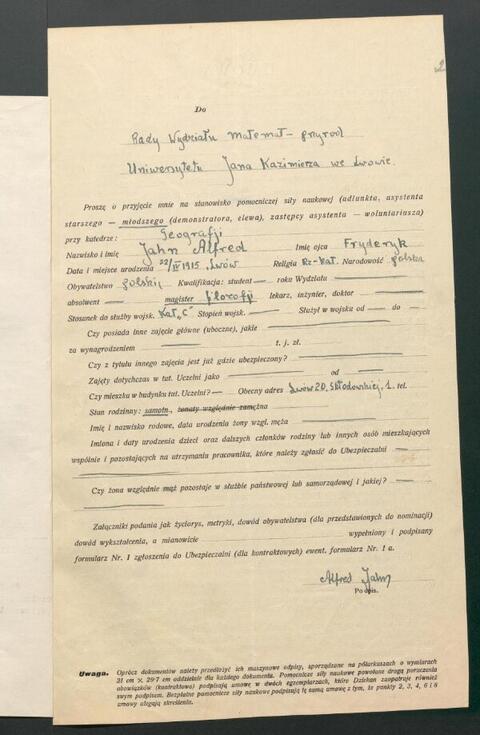 2
Do
Rady Wydziału matemat-przyrod
Uniwersytetu Jana Kazimierza we Lwowie.
Proszę o przyjęcie mnie na stanowisko pomocniczej siły naukowej (adiunkta, asystenta
starszego — młodszego (demonstratora, elewa), zastępcy asystenta — woluntariusza)
przy katedrze: Geografji
Nazwisko i imię Jahn Alfred Imię ojca Fryderyk
Data i miejsce urodzenia 22/IV 1915, Lwów Religia Rz-Kat. Narodowość polska
Obywatelstwo polskie Kwalifikacja: student — roku Wydziału
absolwent — magister filozofji lekarz, inżynier, doktor
Stosunek do służby wojsk. Kat „C" Stopień wojsk. Służył w wojsku od — do
Czy posiada inne zajęcie główne (uboczne), jakie
za wynagrodzeniem t. j. zł.
Czy z tytułu innego zajęcia jest już gdzie ubezpieczony?
Zajęty dotychczas w tut. Uczelni jako od —
Czy mieszka w budynku tut. Uczelni? — Obecny adres Lwów 20, Skłodowskiej, 1. tel.
Stan rodzinny: samotn., żonaty względnie zamężna
Imię i nazwisko rodowe, data urodzenia żony wzgl. męża
Imiona i daty urodzenia dzieci oraz dalszych członków rodziny lub innych osób mieszkających
wspólnie i pozostających na utrzymaniu pracownika, które należy zgłosić do Ubezpieczalni
Czy żona względnie mąż pozostaje w służbie państwowej lub samorządowej i jakiej?
Załączniki podania jak życiorys, metryki, dowód obywatelstwa (dla przedstawionych do nominacji)
dowód wykształcenia, a mianowicie wypełniony i podpisany
formularz Nr. 1 zgłoszenia do Ubezpieczalni (dla kontraktowych) ewent. formularz Nr. 1 a.
Alfred Jahn
Podpis.
Uwaga. Oprócz dokumentów należy przedłożyć ich maszynowe odpisy, sporządzone na półarkuszach o wymiarach
21 cm × 29·7 cm oddzielnie dla każdego dokumentu. Pomocnicze siły naukowe powołane drogą poruczenia
obowiązków (kontraktowo) podpisują umowę w dwóch egzemplarzach, które Dziekan zaopatruje również
swym podpisem. Bezpłatne pomocnicze siły naukowe podpisują tę samą umowę z tym, że punkty 2, 3, 4, 6 i 8
umowy ulegają skreśleniu.